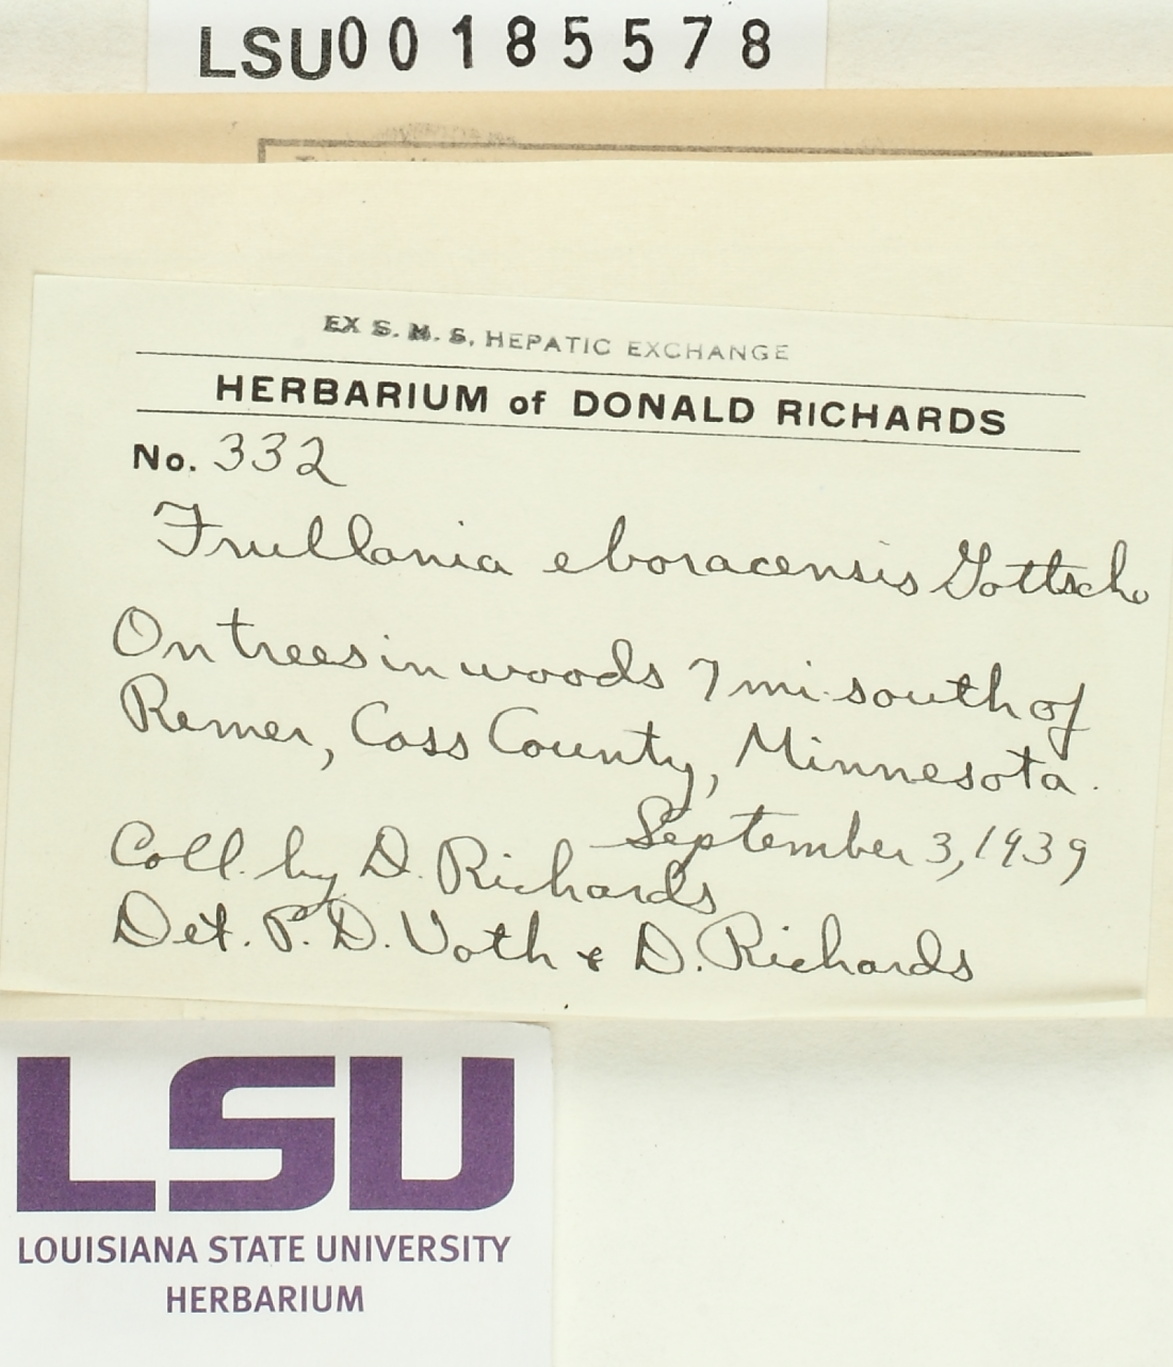 LSU00185578
EX S. M. S. HEPATIC EXCHANGE
HERBARIUM of DONALD RICHARDS
No. 332
Frullania eboracensis Gottsche
On trees in woods 7 mi. south of
Remer, Cass County, Minnesota.
September 3, 1939
Coll. by D. Richards
Det. P. D. Voth & D. Richards
LSU
LOUISIANA STATE UNIVERSITY
HERBARIUM